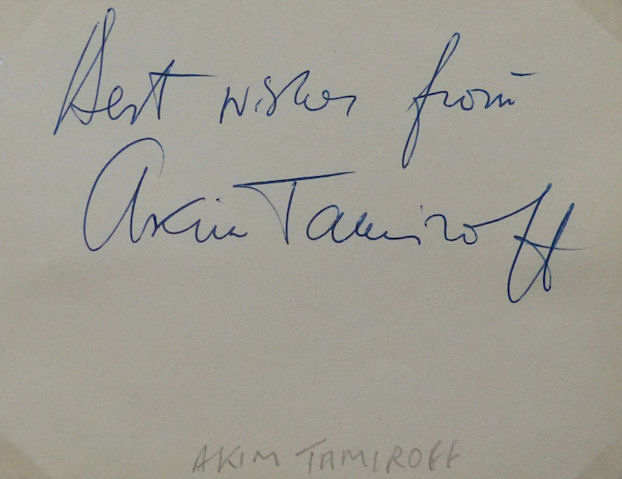 Best wishes from
Akim Tamiroff
AKIM TAMIROFF